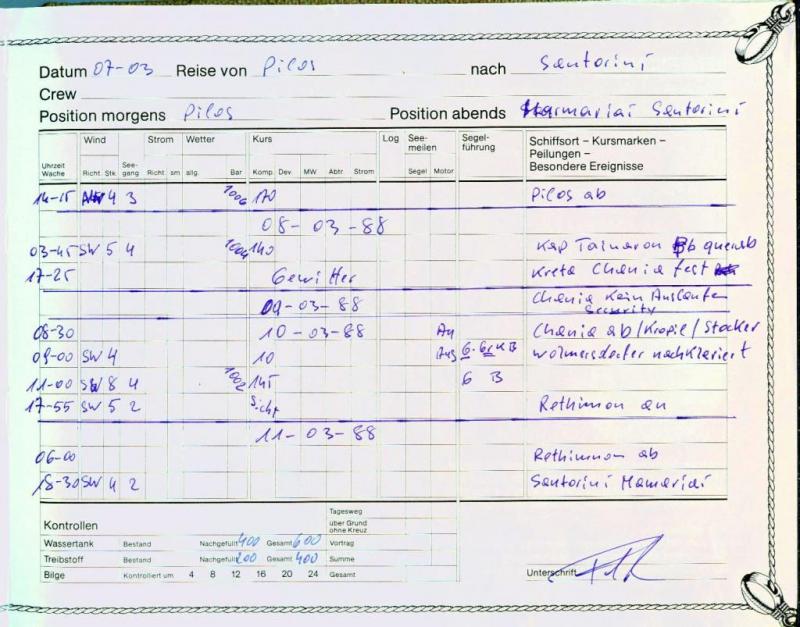 Datum 07-03 Reise von Pilos nach Santorini
Crew
Position morgens Pilos Position abends Santorini
Wind Strom Wetter Kurs Log See- Segel- Schiffsort – Kursmarken –
meilen führung Peilungen –
Uhrzeit See- Besondere Ereignisse
Wache Richt. Stk. gang Richt. sm allg. Bar Komp. Dev. MW Abtr. Strom Segel Motor
14-15 4 3 1006 170 Pilos ab
08-03-88
03-45 SW 5 4 1004 140 Kap Tainaron Bb querab
17-25 Gewitter Kreta Chania fest
09-03-88 Chania Kein Auslaufen
Security
08-30 10-03-88 An Chania ab/Kropie/Stocker
09-00 SW 4 10 Aus G. B nachklariert
11-00 SW 8 4 1002 145 G B
17-55 SW 5 2 Sicht Rethimnon an
11-03-88
06-00 Rethimnon ab
18-30 SW 4 2 Santorini
Kontrollen Tagesweg
über Grund
ohne Kreuz
Wassertank Bestand Nachgefüllt 400 Gesamt 600 Vortrag
Treibstoff Bestand Nachgefüllt 200 Gesamt 400 Summe
Bilge Kontrolliert um 4 8 12 16 20 24 Gesamt Unterschrift